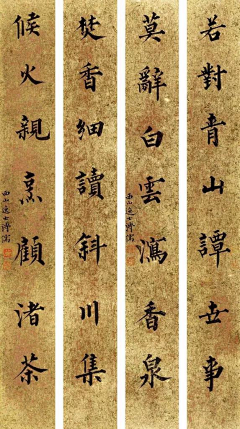 若對青山譚世事
莫辭白雲瀉香泉
西山逸士溥儒
焚香細讀斜川集
候火親烹顧渚茶
西山逸士溥儒